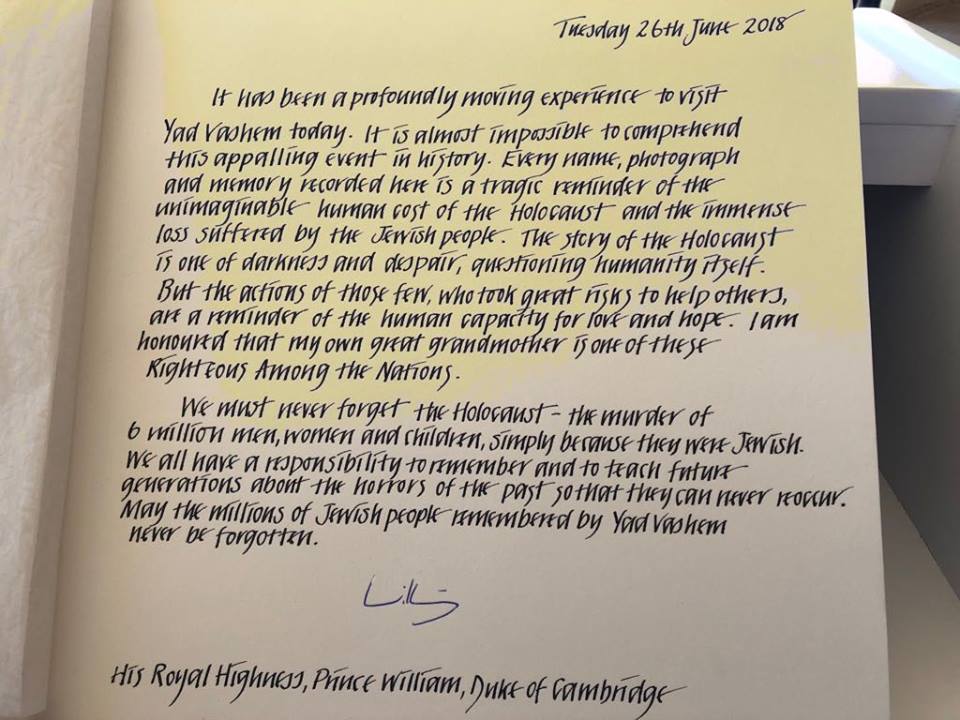 Tuesday 26th June 2018
It has been a profoundly moving experience to visit
Yad Vashem today. It is almost impossible to comprehend
this appalling event in history. Every name, photograph
and memory recorded here is a tragic reminder of the
unimaginable human cost of the Holocaust and the immense
loss suffered by the Jewish people. The story of the Holocaust
is one of darkness and despair, questioning humanity itself.
But the actions of those few, who took great risks to help others,
are a reminder of the human capacity for love and hope. I am
honoured that my own great grandmother is one of these
Righteous Among the Nations.
We must never forget the Holocaust - the murder of
6 million men, women and children, simply because they were Jewish.
We all have a responsibility to remember and to teach future
generations about the horrors of the past so that they can never reoccur.
May the millions of Jewish people remembered by Yad Vashem
never be forgotten.
William
His Royal Highness, Prince William, Duke of Cambridge